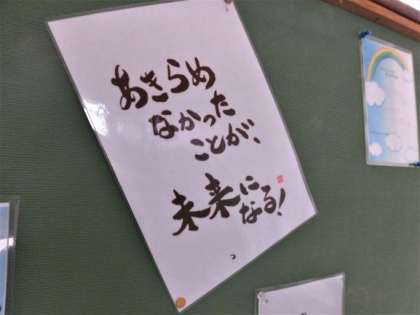 あきらめ
なかった
ことが、
未来に
なる!